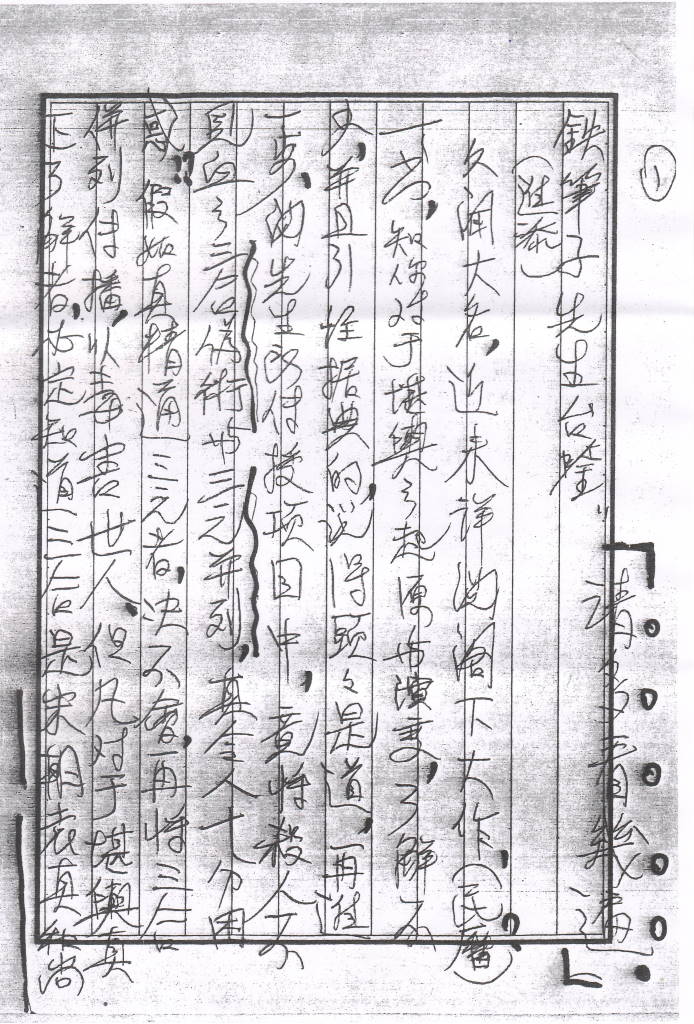 (1)
鉄筆子先生台鑒"
請多看幾遍
(進添)
久闻大名,近来詳阅阁下大作,(民曆)?
一書,知你对于堪輿之起源與演变,了解不
少,并且引経据典的,说得頭々是道,再進
一步,阅先生所传授项目中,竟将殺人不
見血之三合偽術与三元并列,真令人十分困
惑!?假如真精通三元者,决不會再将三合
併列传播,以毒害世人,但凡对于堪輿真
正了解者,必定知道三合是宋朝袁真